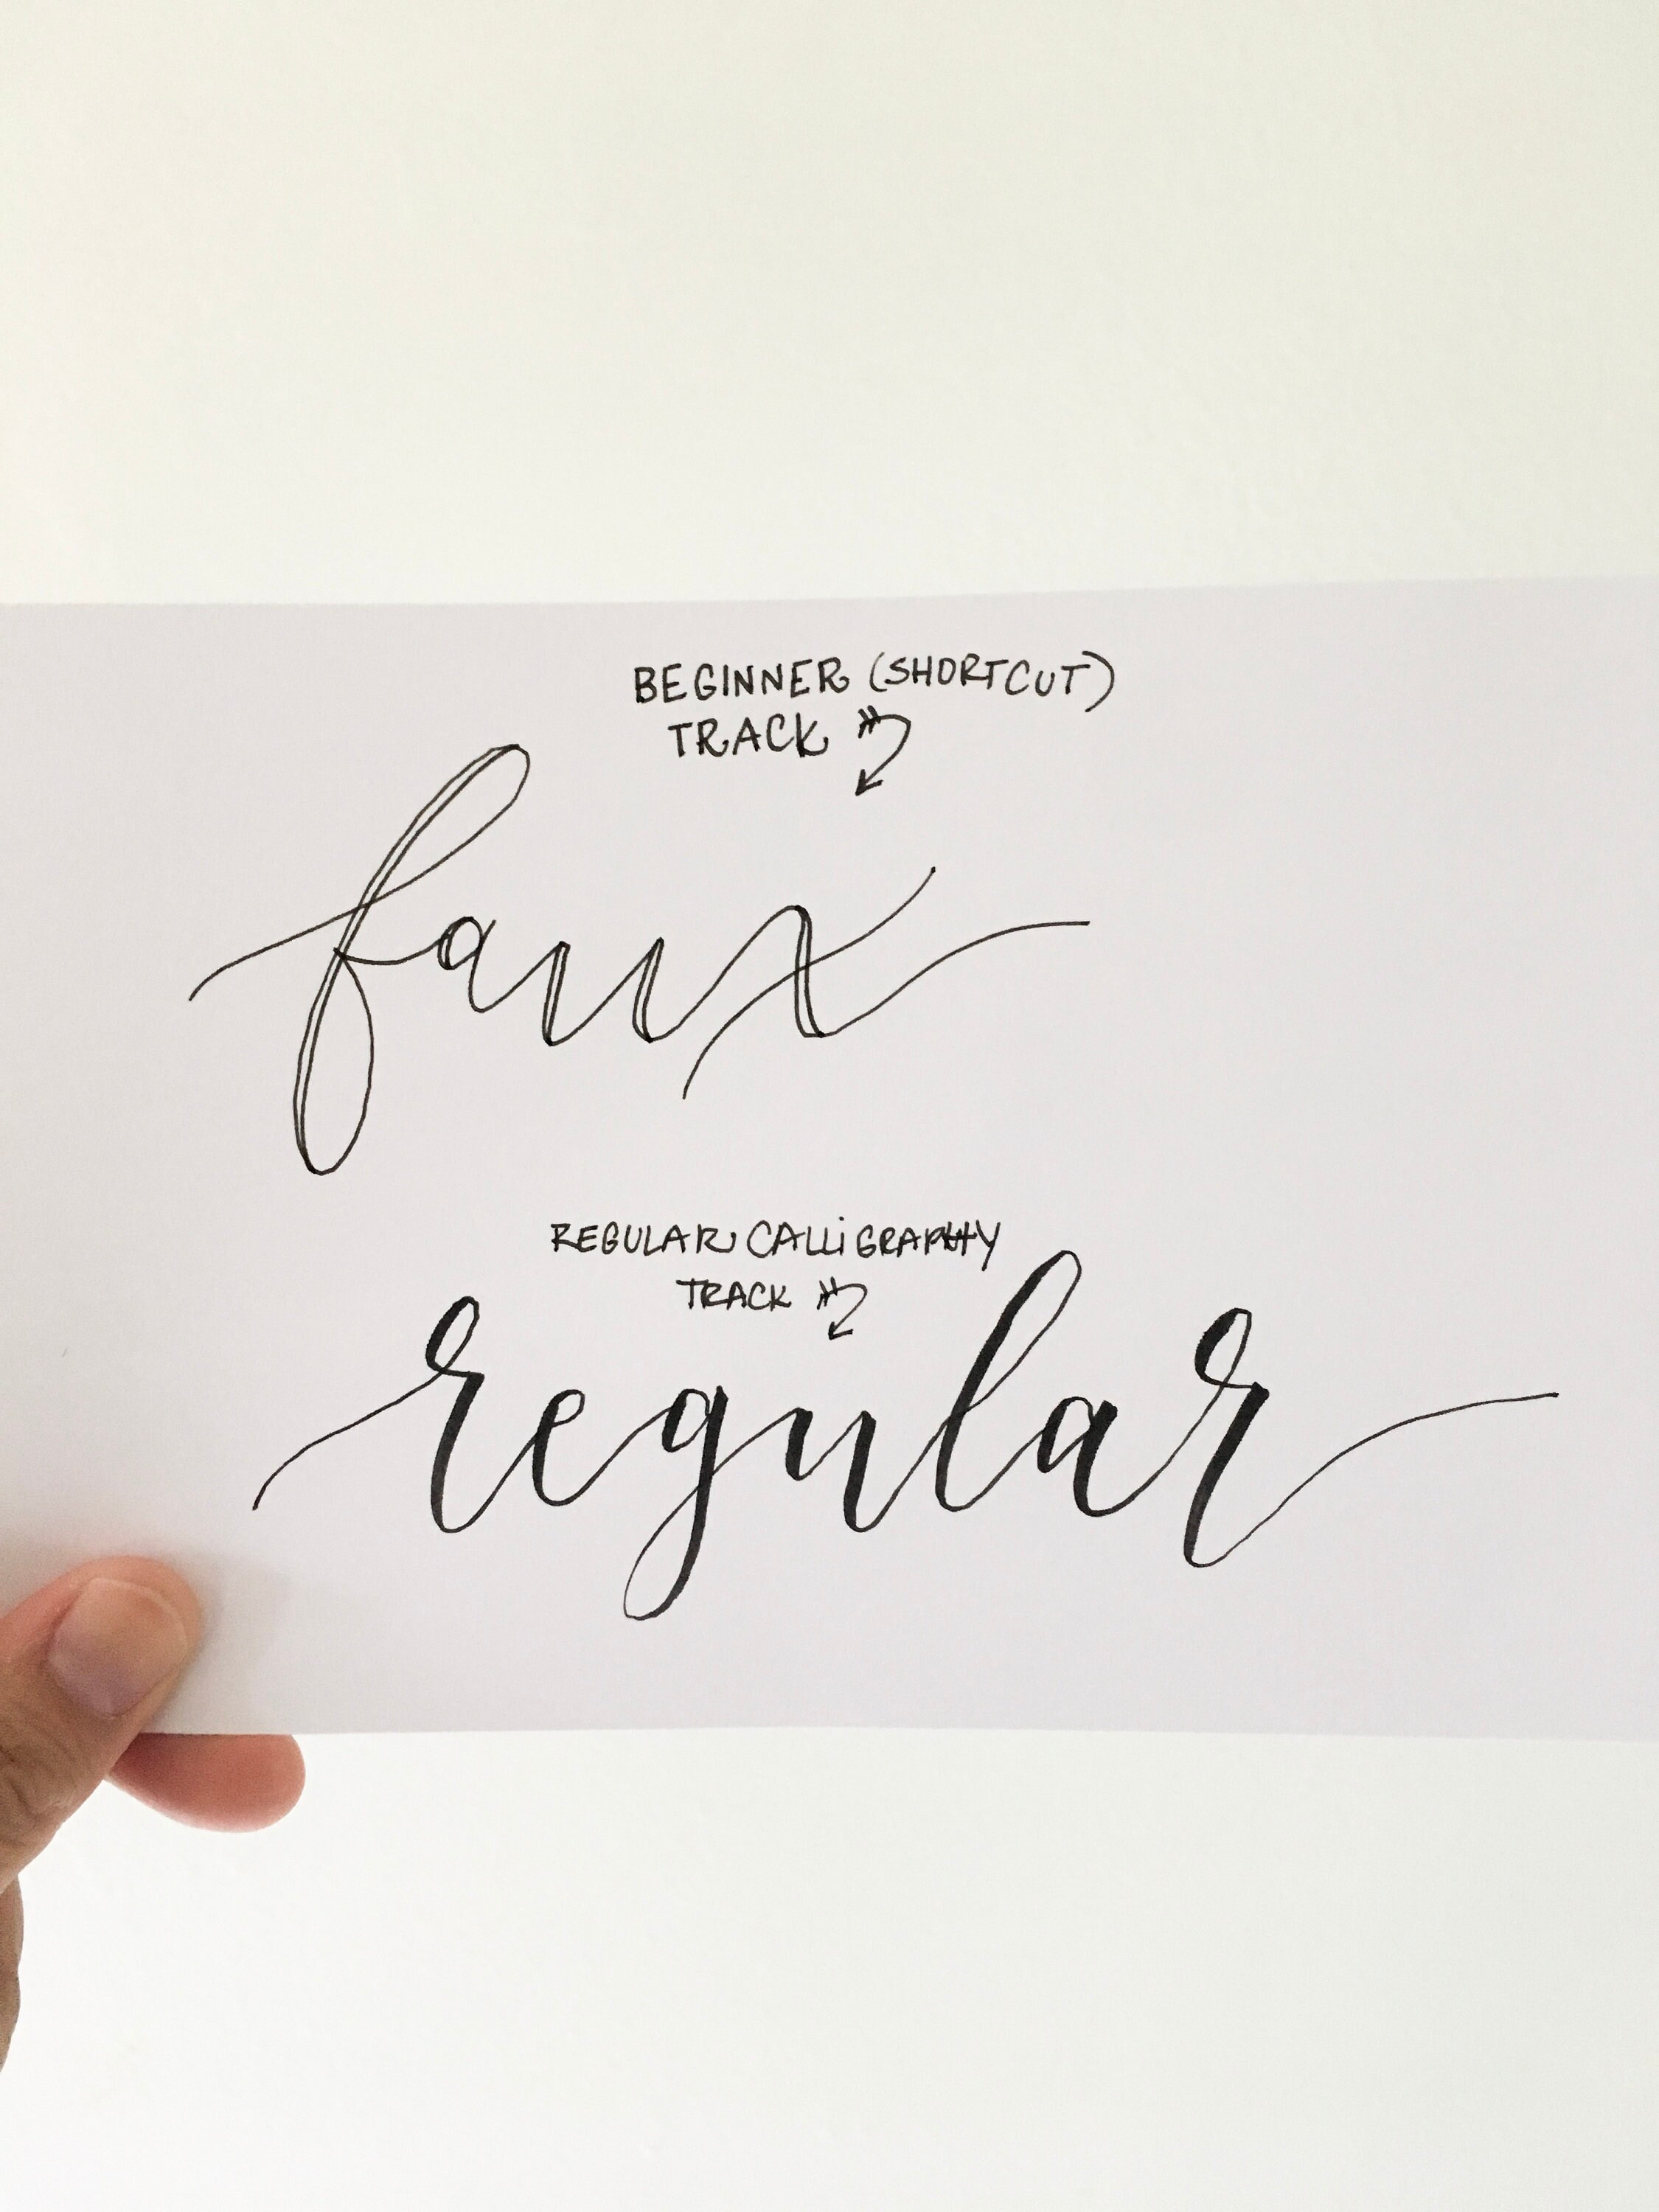 BEGINNER (SHORTCUT)
TRACK
faux
REGULAR CALLiGRAPHY
TRACK
regular